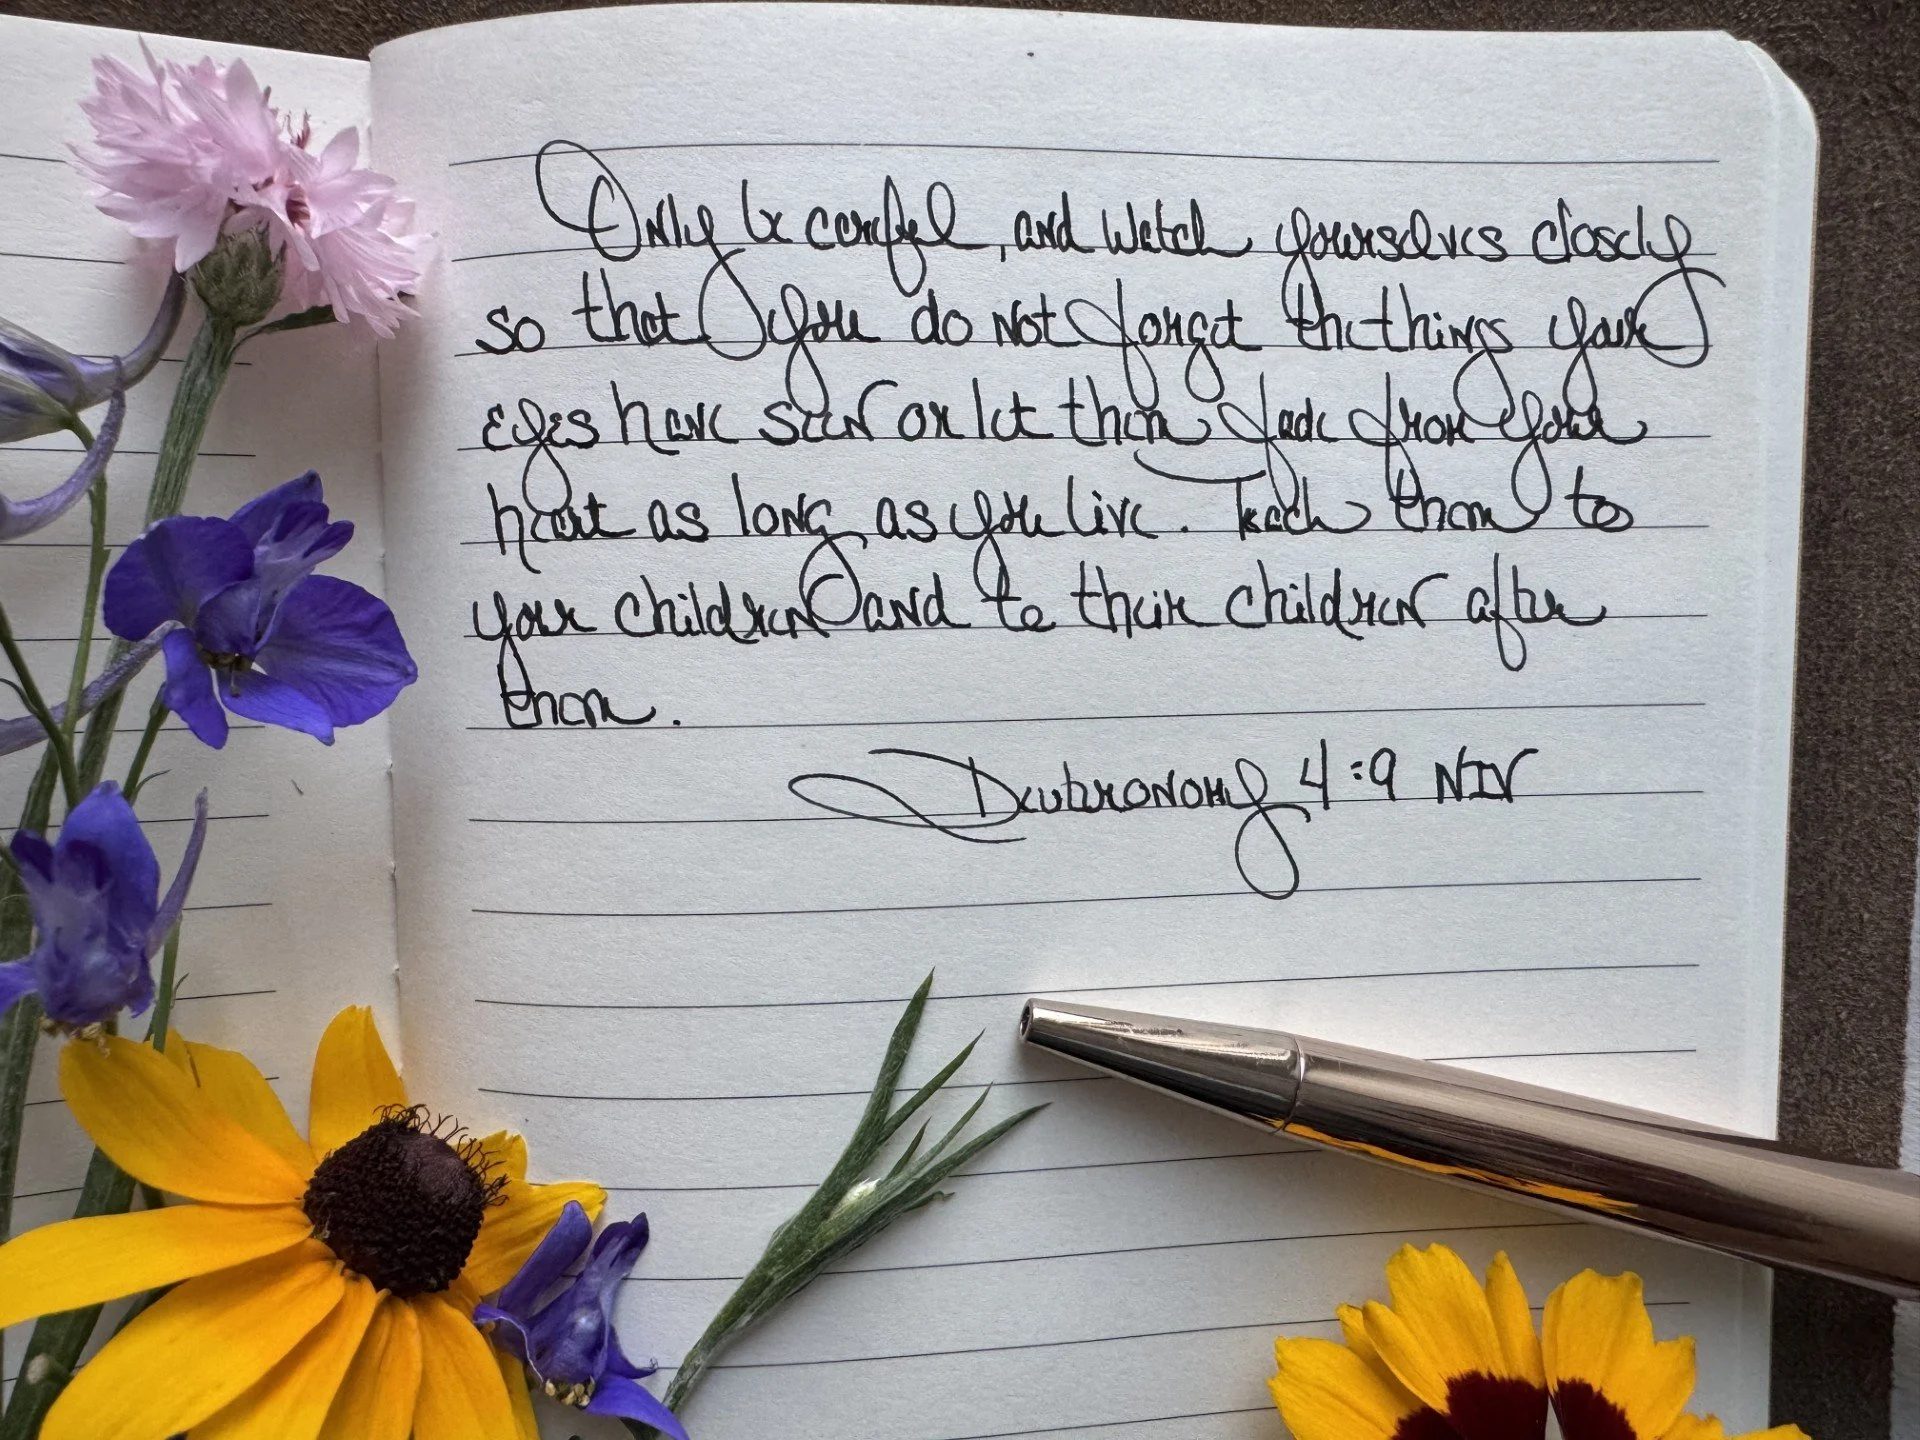 Only be careful, and watch yourselves closely
so that you do not forget the things your
eyes have seen or let them fade from your
heart as long as you live. Teach them to
your children and to their children after
them.
Deuteronomy 4:9 NIV